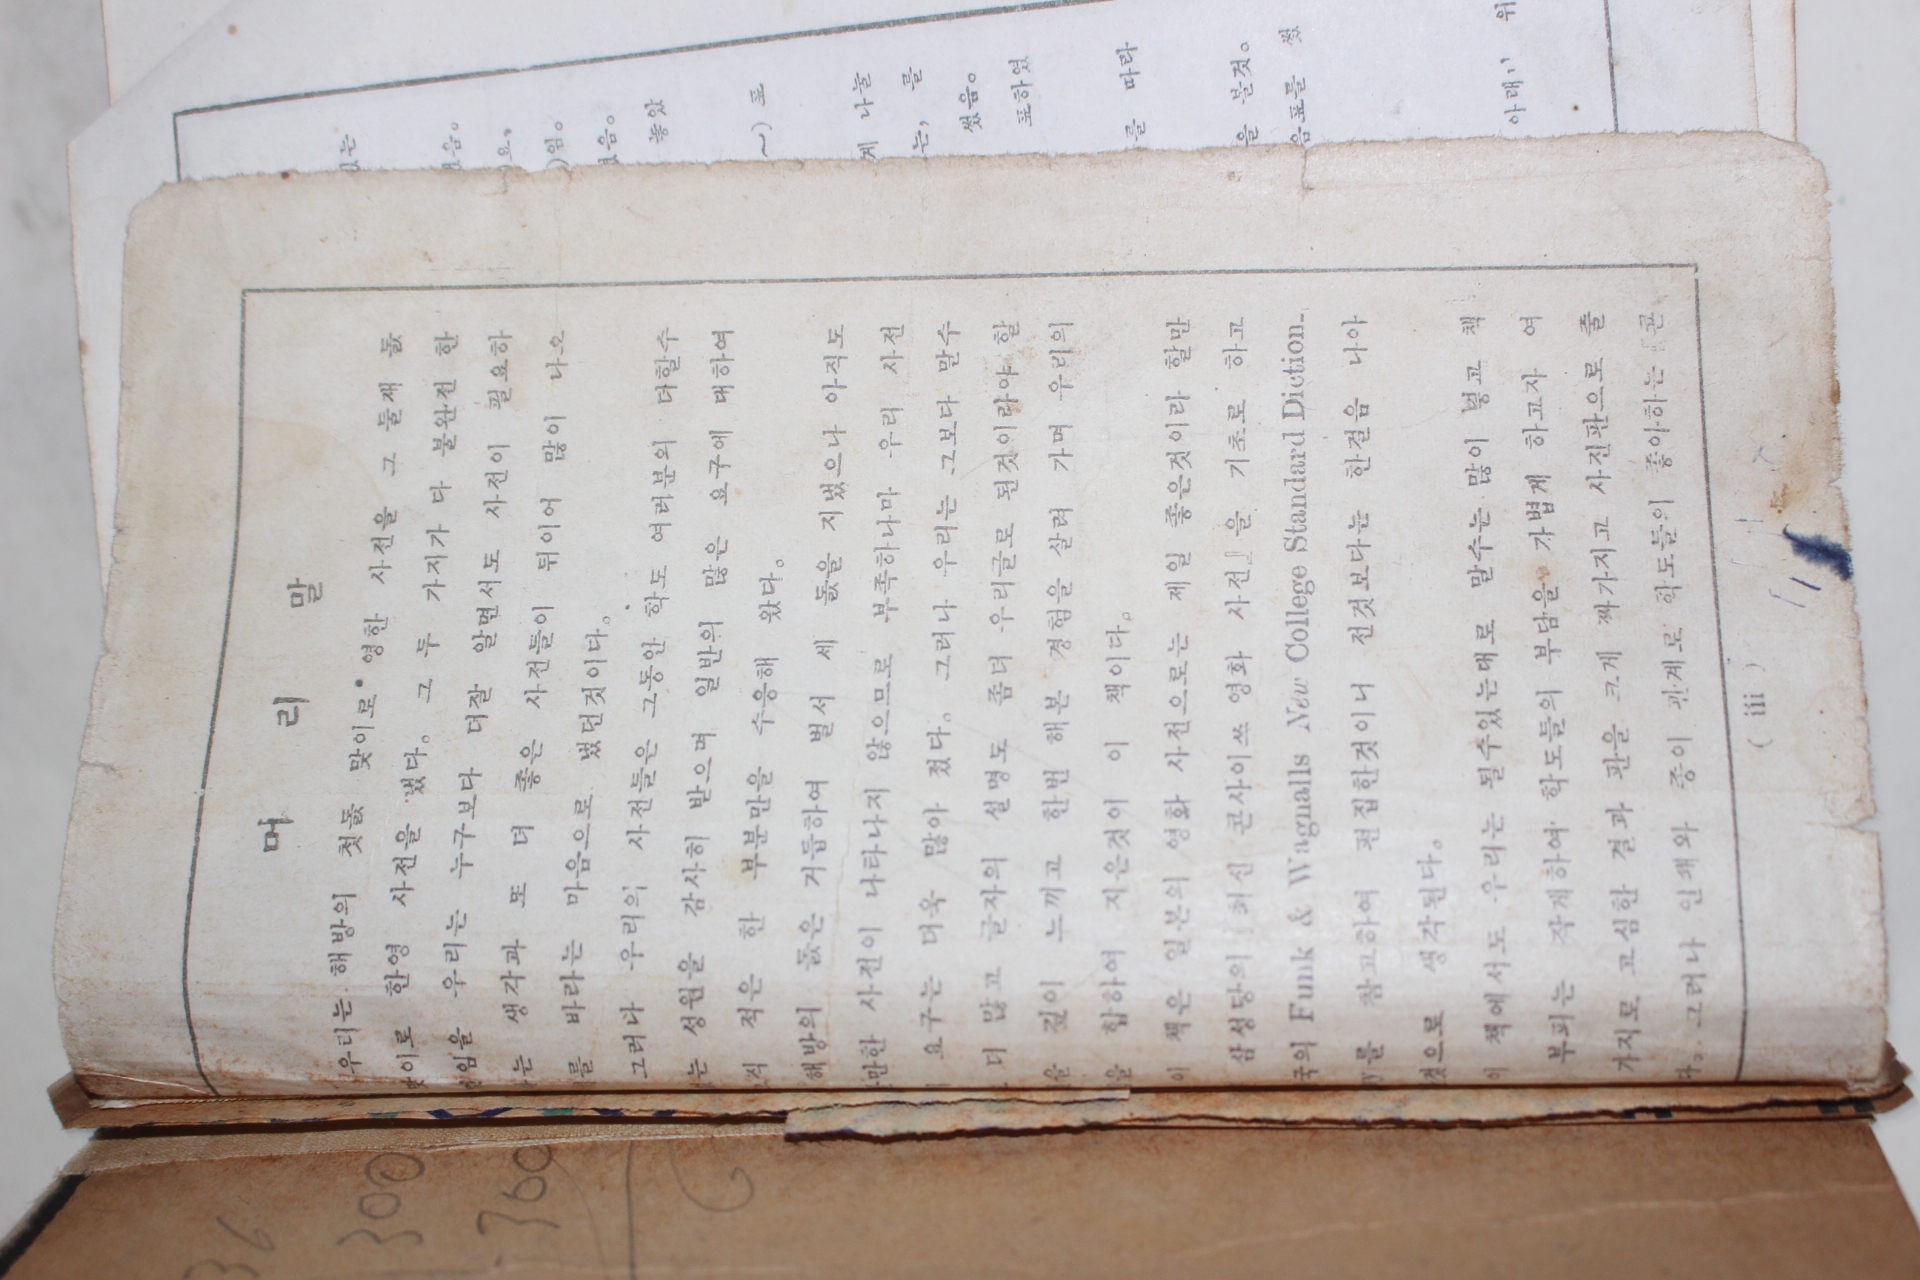 머 리 말
우리는 해방의 첫돐 맞이로 영한 사전을 그 둘재 돐
맞이로 한영 사전을 냈다。 그 두 가지가 다 불완전 한
임을 우리는 누구보다 더잘 알면서도 사전이 필요하
는 생각과 또 더 좋은 사전들이 뒤이어 많이 나오
를 바라는 마음으로 냈던것이다。
그러나 우리의 사전들은 그동안 학도 여러분의 더할수
는 성원을 감사히 받으며 일반의 많은 요구에 대하여
적은 한 부분만을 수응해 왔다。
해방의 돐은 거듭하여 벌서 세 돐을 지냈으나 아직도
만한 사전이 나타나지 않으므로 부족하나마 우리 사전
요구는 더욱 많아 졌다。 그러나 우리는 그보다 말수
더 많고 글자의 설명도 좀더 우리글로 된것이라야 할
을 깊이 느끼고 한번 해본 경험을 살려 가며 우리의
을 합하여 지은것이 이 책이다。
이 책은 일본의 영화 사전으로는 제일 좋은것이라 할만
삼성당의 『최신 콘사이쓰 영화 사전』을 기초로 하고
국의 Funk & Wagnalls New College Standard Diction-
y를 참고하여 편집한것이니 전것보다는 한걸음 나아
것으로 생각된다。
이 책에서도 우리는 될수있는대로 말수는 많이 넣고 책
부피는 작게하여 학도들의 부담을 가볍게 하고자 여
가지로 고심한 결과 판을 크게 짜가지고 사진판으로 줄
다。 그러나 인쇄와 종이 관계로 학도들이 좋아하는 「콘
( iii )
있는
음。
요,
)임。
음。
놓았
(~) 표
게 나눌
는, 를
썼음。
표하였
를 따라
을 볼것。
음표를 썼
아래 위
36
300
760